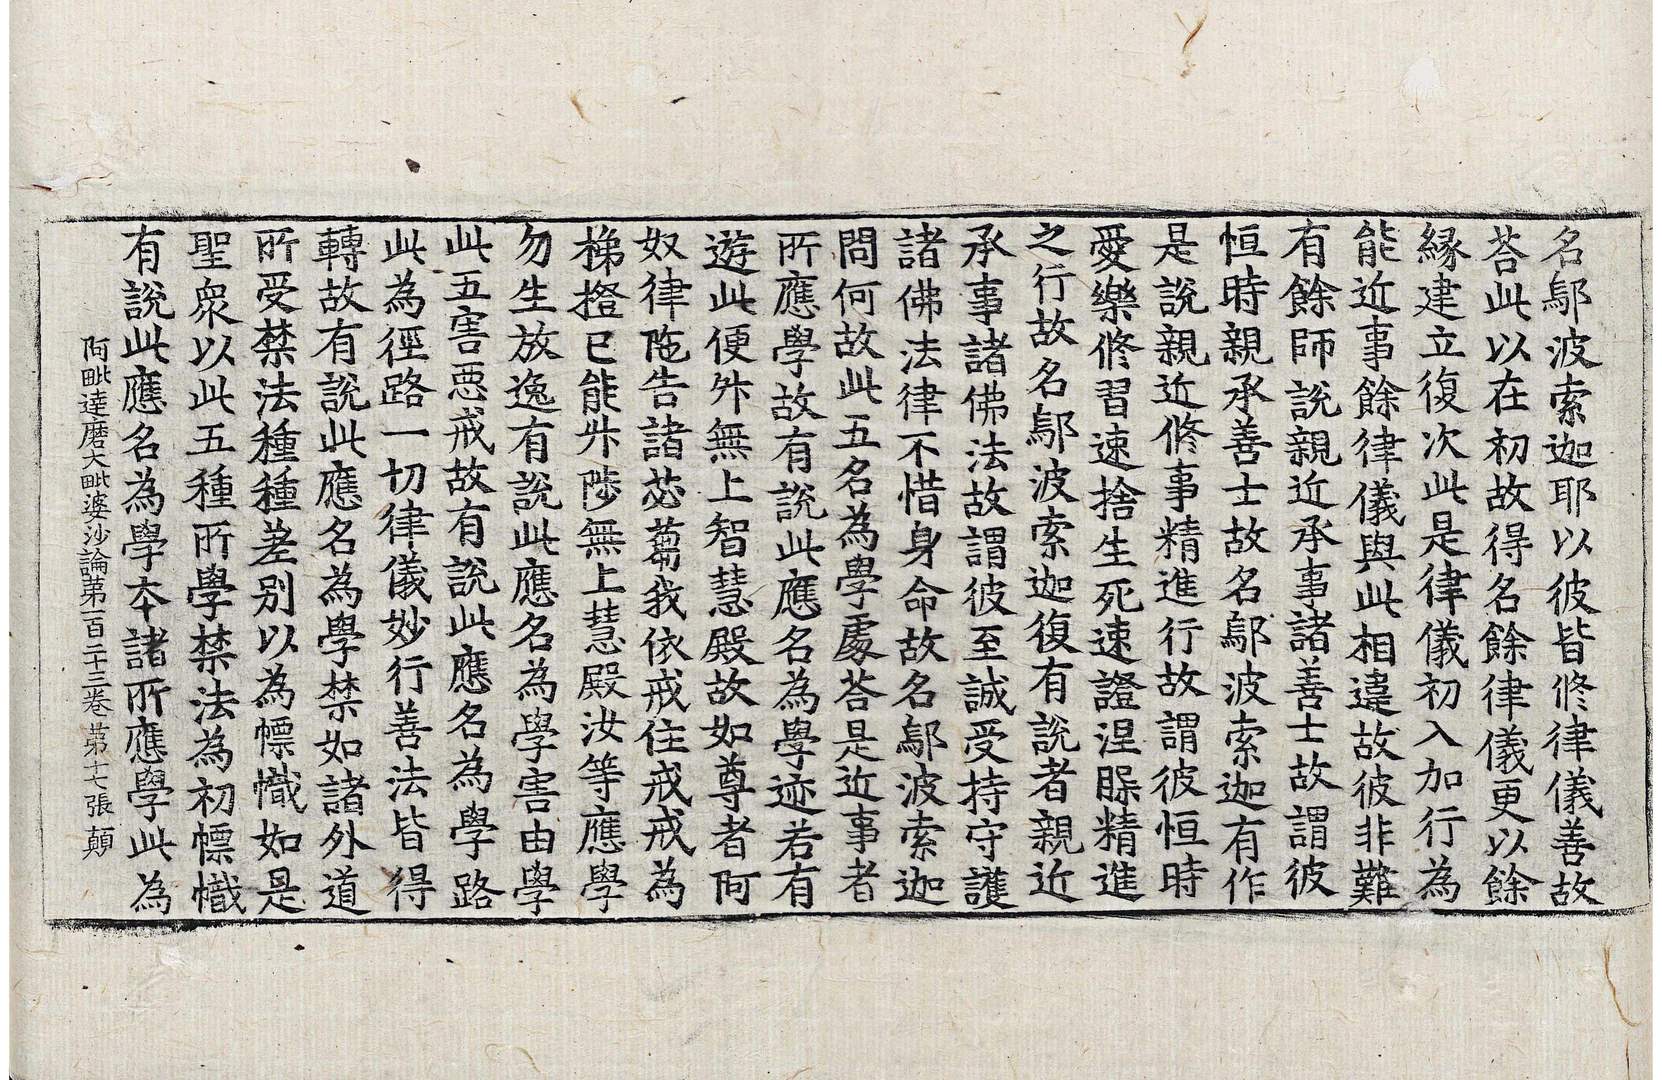 名鄔波索迦耶以彼皆修律儀善故
荅此以在初故得名餘律儀更以餘
緣建立復次此是律儀初入加行為
能近事餘律儀與此相違故彼非難
有餘師說親近承事諸善士故謂彼
恒時親承善士故名鄔波索迦有作
是說親近修事精進行故謂彼恒時
愛樂修習速捨生死速證涅脲精進
之行故名鄔波索迦復有說者親近
承事諸佛法故謂彼至誠受持守護
諸佛法律不惜身命故名鄔波索迦
問何故此五名為學處荅是近事者
所應學故有說此應名為學迹若有
遊此便昇無上智慧殿故如尊者阿
奴律陁告諸苾蒭我依戒住戒戒為
梯橙已能升陟無上慧殿汝等應學
勿生放逸有說此應名為學害由學
此五害惡戒故有說此應名為學路
此為徑路一切律儀妙行善法皆得
轉故有說此應名為學禁如諸外道
所受禁法種種差别以為幖幟如是
聖衆以此五種所學禁法為初幖幟
有說此應名為學本諸所應學此為
阿毗達磨大毗婆沙論第一百二十三卷 第十七張 顛